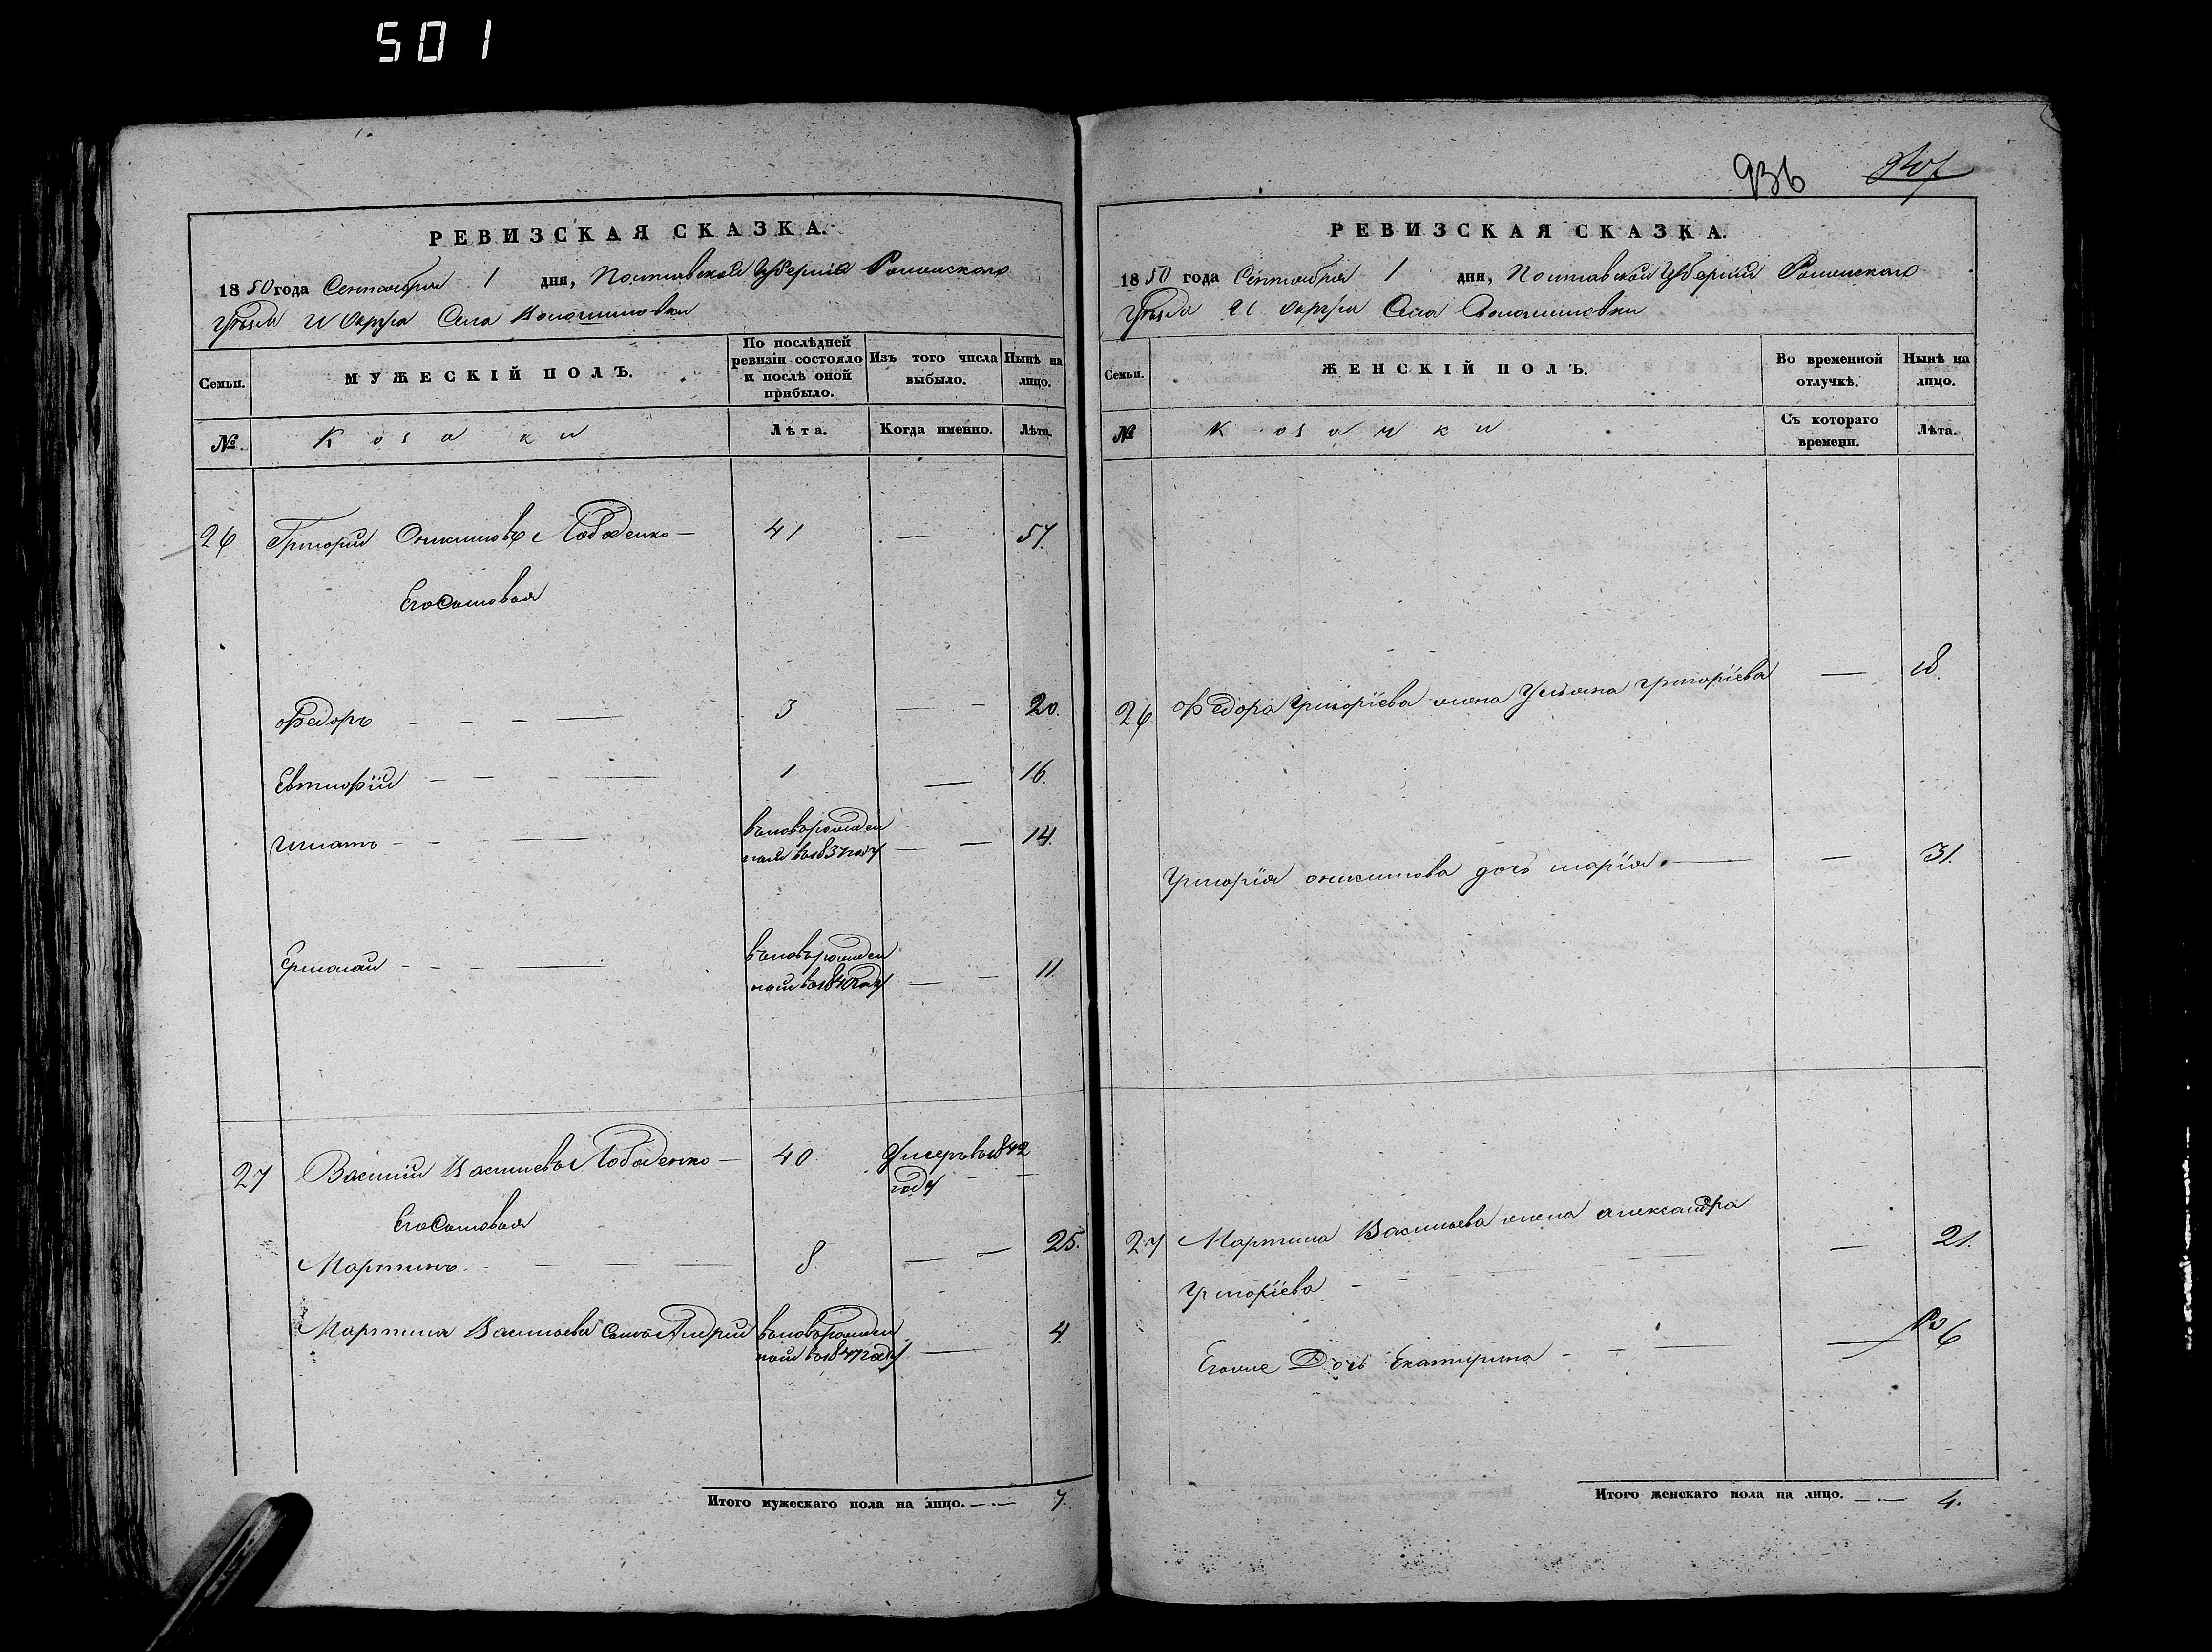 501
936
907
РЕВИЗСКАЯ СКАЗКА.
1850 года Сентября 1 дня, Полтавской Губерніи Роменскаго
Уѣзда и Округа Села Волошиновки
Семьи.
МУЖЕСКІЙ ПОЛЪ.
По послѣдней ревизіи состояло и послѣ оной прибыло.
Изъ того числа выбыло.
Нынѣ на лицо.
№
Козаки
Лѣта.
Когда именно.
Лѣта.
26 Григорий Оникиіовъ Лободенко — 41 — 57.
Его Сыновья
Федоръ - - - — 3 — - 20.
Евтифій - - - — 1 — 16.
Игнатъ - - - — вновь рожден
ной в 1837 году — — 14.
Ермолай - - - — вновь рожден
ной в 1840 году — - 11.
27 Василий Васильевъ Лободенко — 40 Умеръ в 1842
году
Его Сыновья
Мартинъ - - — — 8 — - 25.
Мартина Васильева Сынъ Андрей вновь рожден
ной в 1847 году — 4.
Итого мужескаго пола на лицо. — 7.
РЕВИЗСКАЯ СКАЗКА.
1850 года Сентября 1 дня, Полтавской Губерніи Роменскаго
Уѣзда и Округа Села Волошиновки
Семьи.
ЖЕНСКІЙ ПОЛЪ.
Во временной отлучкѣ.
Нынѣ на лицо.
№
Козачки
Съ котораго времени.
Лѣта.
26 Федора Григоріева жена Ульяна Григоріева — 18.
Григорія дочь Марія — — 31.
27 Мартина Васильева жена Александра
Григоріева - - - — — 21.
Егоже Дочь Екатерина - - — — 6
Итого женскаго пола на лицо. — 4.